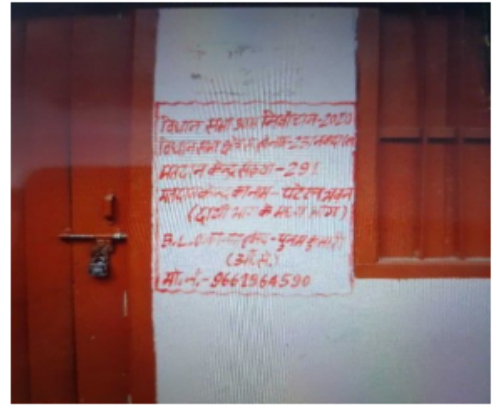 विधान सभा आम निर्वाचन-2020
विधानसभा क्षेत्र
मतदान केन्द्र संख्या-291
मतदान केन्द्र का नाम- पटेल भवन
(दायाँ भाग के मध्य भाग)
B.L.O का नाम पुनम कुमारी
मो.नं.-9661964590